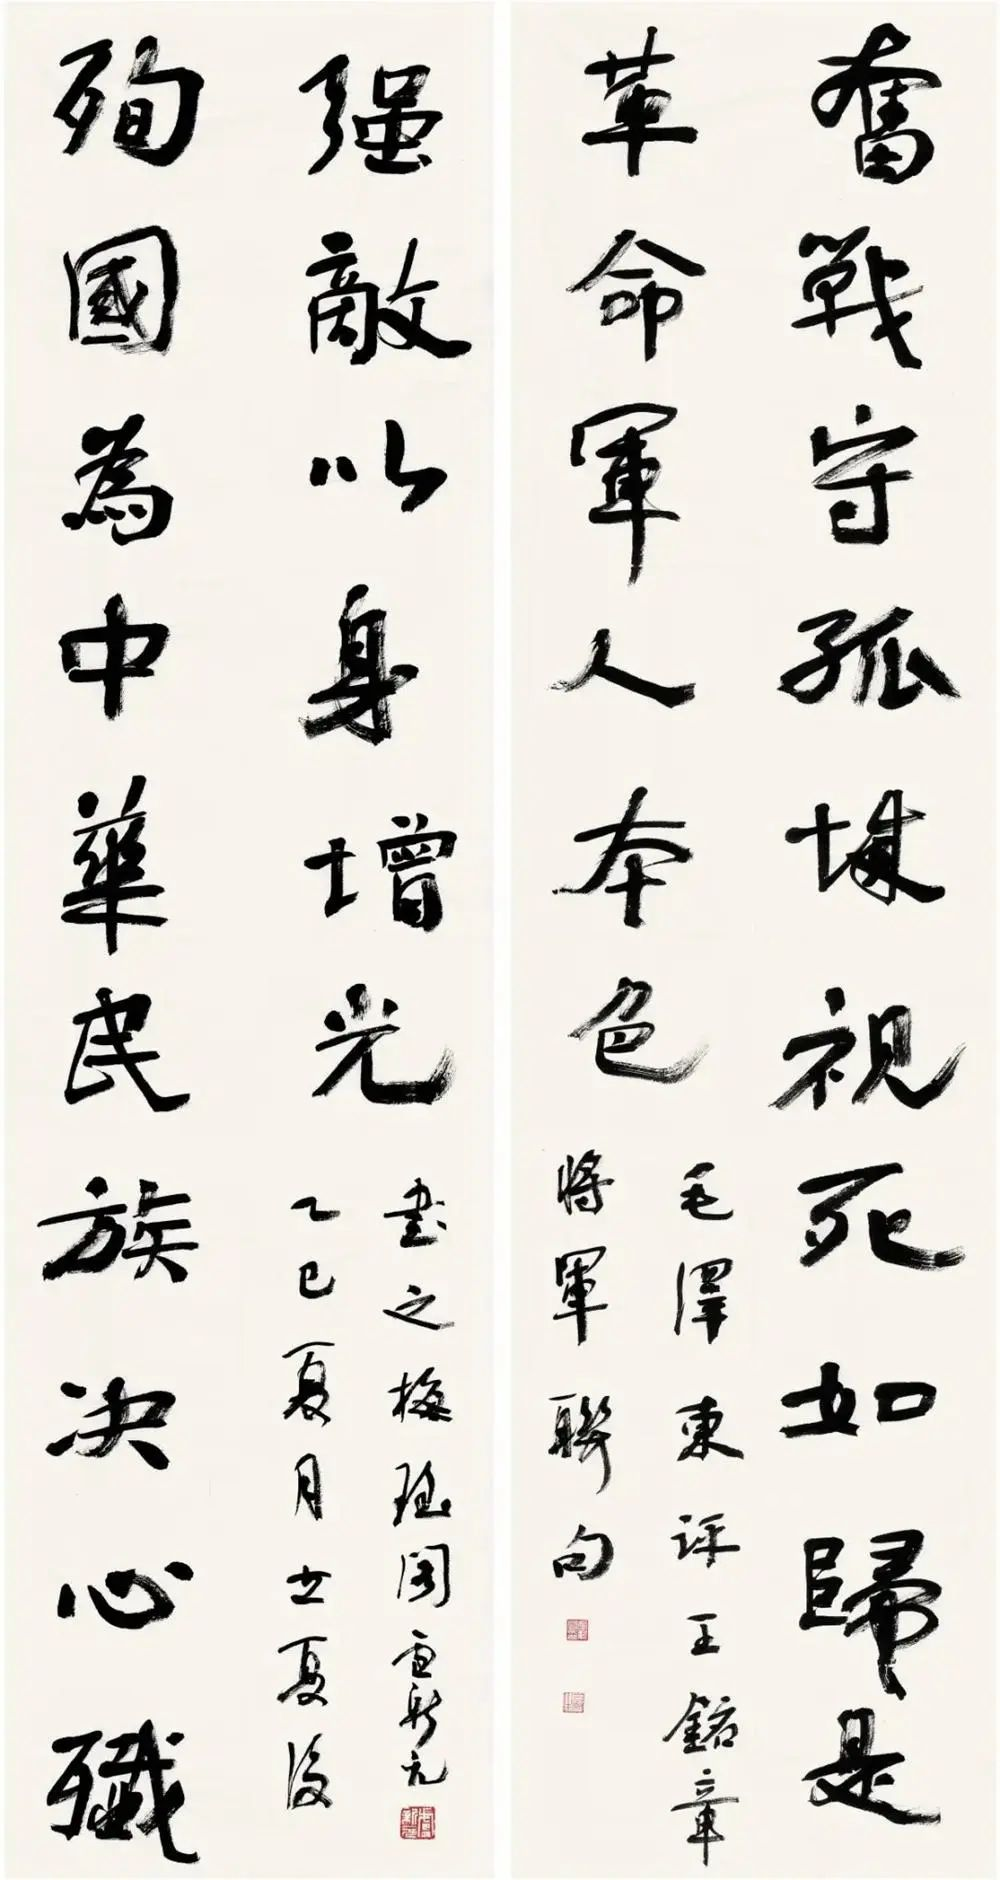 奮戰守孤城視死如歸是
革命軍人本色
毛澤東評王銘章
將軍聯句
殉國為中華民族决心殲
强敵以身增光
書之梅閣新元
乙巳夏月立夏後